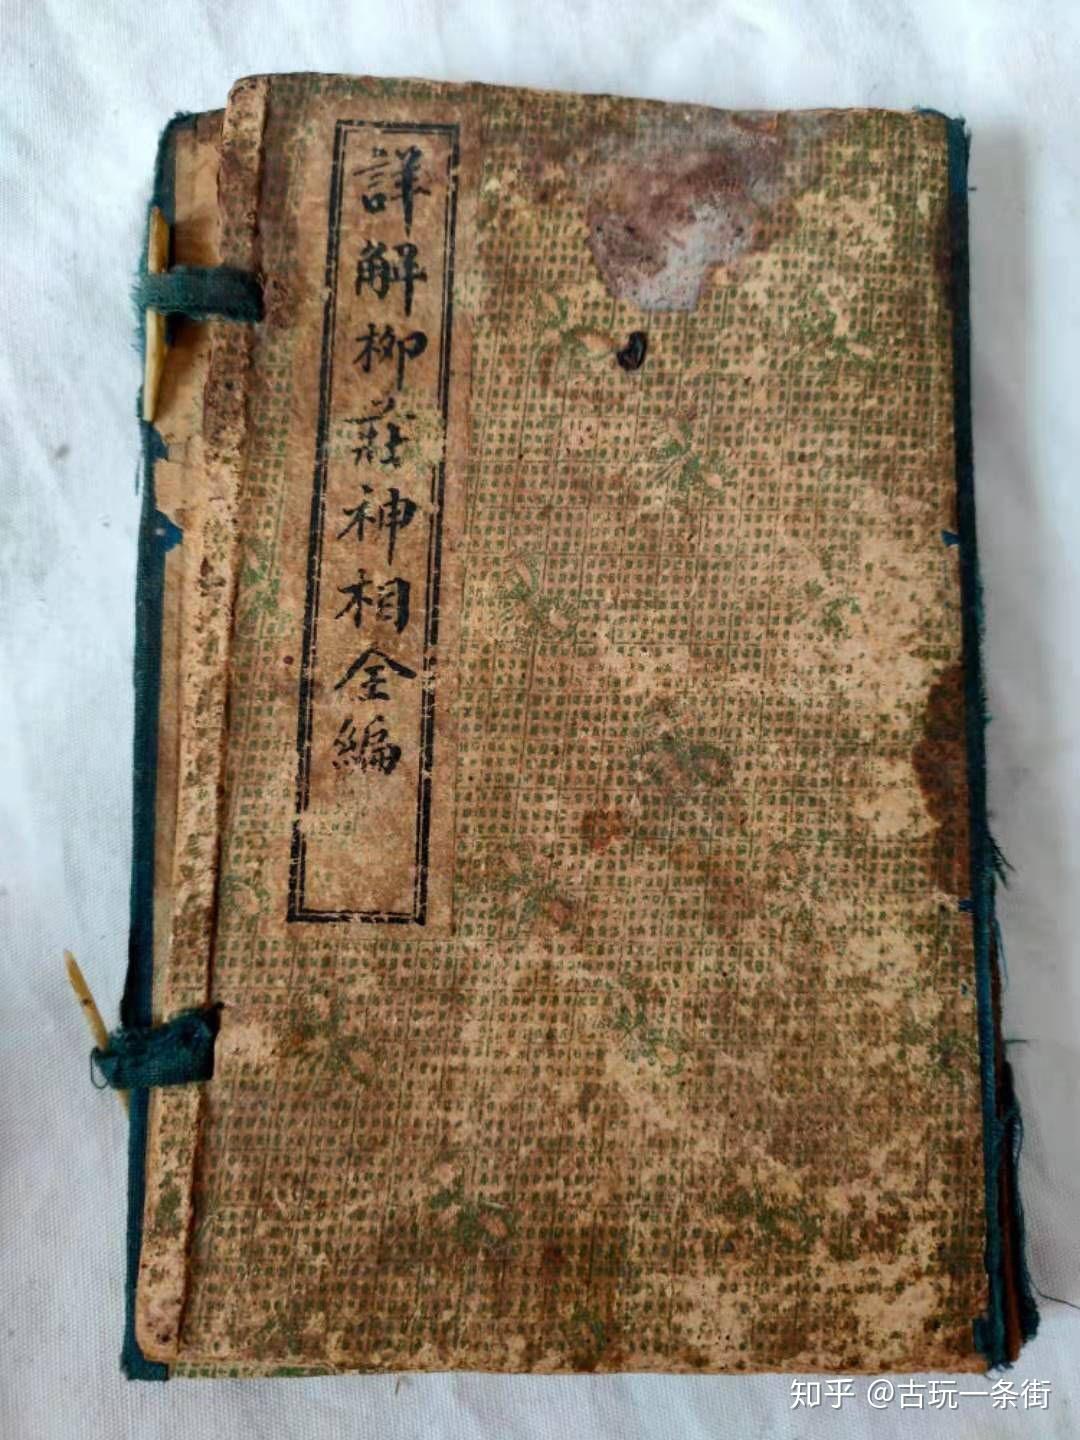 詳解柳莊神相全編
知乎 @古玩一条街